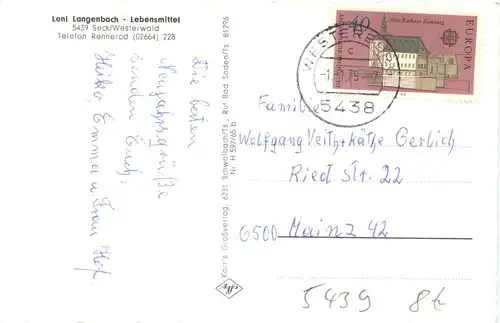 Leni Langenbach - Lebensmittel
5439 Seck/Westerwald
Telefon Rennerod (02664) 228
Die besten
Neujahrsgrüße
senden Euch
Heiko, Emma u Frau Hof.
Karr's Großverlag, 6231 Schwalbach/Ts., Ruf Bad Soden/Ts 81296
Nr. H 597/65 b
40
Altes Rathaus Bamberg
EUROPA
WESTERB
5438
Familie
Wolfgang Veith + Käthe Gerlich
Ried Str. 22
6500 Mainz 42
5439 8t